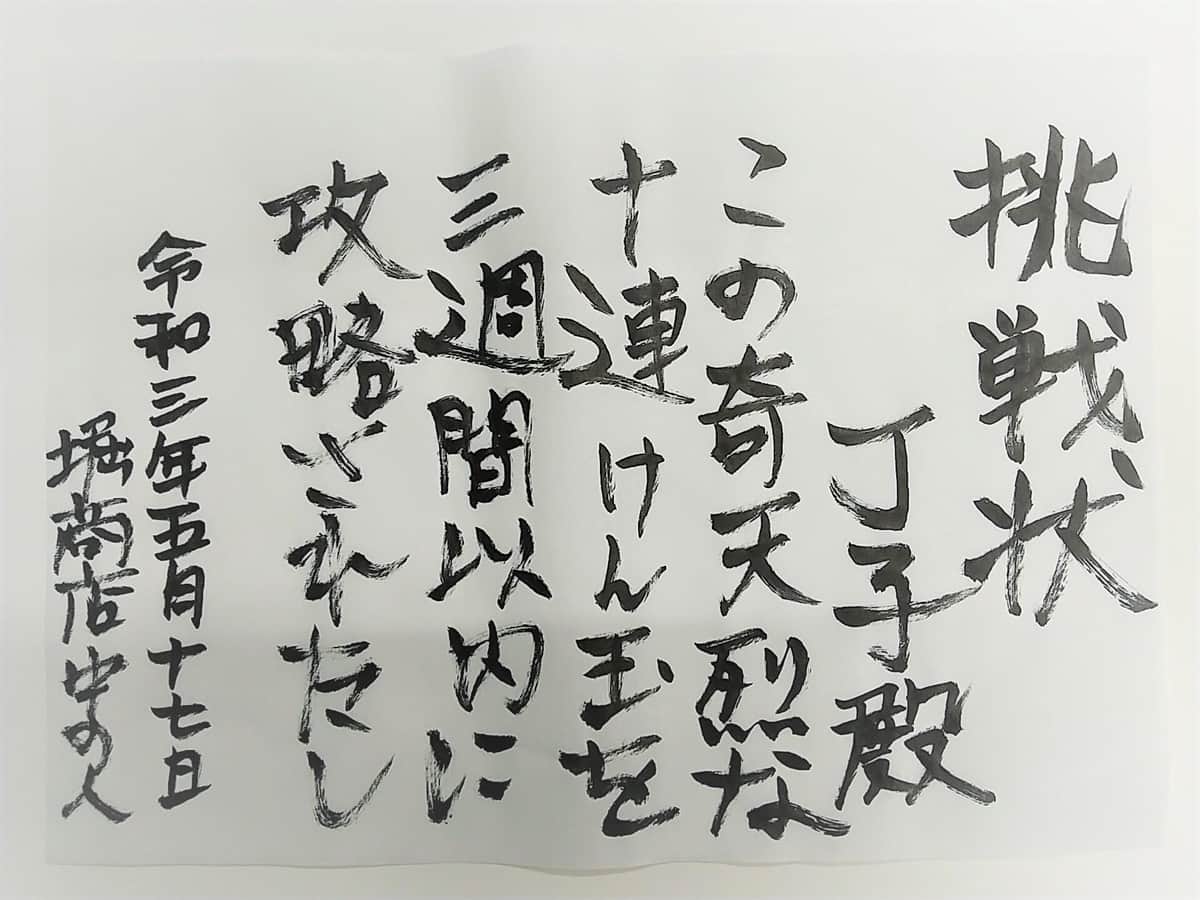 挑戦状
丁子殿
この奇天烈な
十連けん玉を
三週間以内に
攻略されたし
令和三年五月十七日
堀商店中の人